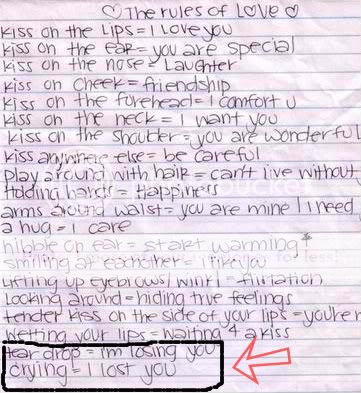 ♡The rules of LOVE♡
kiss on the Lips = I Love you
kiss on the ear = you are special
kiss on the nose = Laughter
kiss on cheek = friendship
kiss on the forehead = I comfort u
kiss on the neck = I want you
kiss on the shoulder = you are wonderful
kiss anywhere else = be careful
play around with hair = can't live without
Holding hands = Happiness
arms around waist = you are mine I need
a hug = I care
nibble on ear = start warming
smiling at eachother = I like you
Lifting up eyebrows/wink = flirtation
Looking around = hiding true feelings
tender kiss on the side of your lips = you're
wetting your lips = waiting 4 a kiss
tear drop = i'm losing you
crying = I lost you